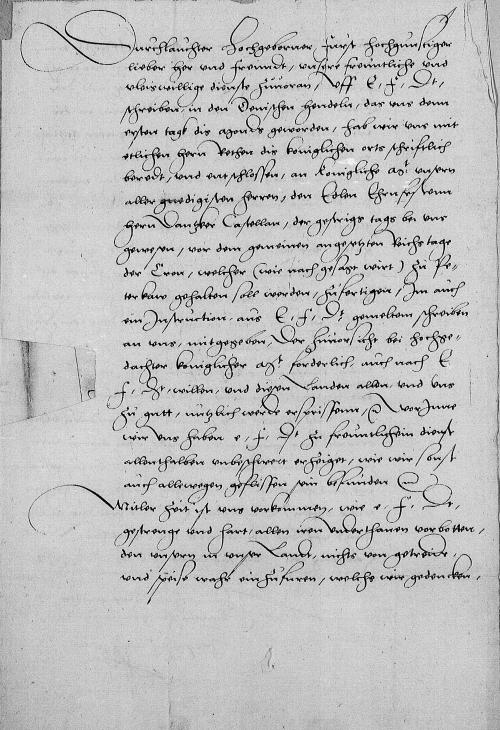 Durchlauchter Hochgeborner Furst hochgunstiger
lieber her und freundt, unsere freuntliche und
vleiswillige dienste zuvoran, Uff E. f. Dt.
schreiben in den Denischen hendeln, das uns denn
ersten tagk dis agends geworden, hab wir uns mit
etlichen hern Rethen dis koniglichen orts schriftlich
beredt, und entschlossen, an konigliche Mt unsern
aller gnedigisten herren, den Edlen Ehrnfesten
hern Dantzker Castellan, der gestrigs tags bei uns
gewesen, vor dem gemeinen angesetzten Richstage
der Cron, welcher (wie nach gesagt wirt) zu Pe-
terkaw gehalten soll werden, zufertigen, Im auch
ein Instruction, aus E. f. Dt gemeltem schreiben
an uns, mitgegeben, Der zuversicht bei hochge-
dachter koniglicher Mt forderlich, auch nach E.
f. Dt. willen, und diesen Landen allen und uns
zu gutt, nutzlich werde erspriessenn, Worinne
wir uns haben e. f. Dt zu freuntlichem dienst
allenthalben unbeschwert erzeiget, wie wir sunst
auch allewegen geflissen sein befunden
Mitler Zeit ist uns vorkommen, wie e. f. Dt.
gestrenge und hart, allen iren underthanen vorbotten,
den unsern in unser Landt, nichts von getreide,
und speise wahr einzufuren, welche wir gedencken,